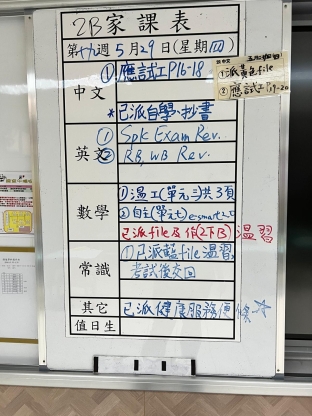 2B家課表
第十九週5月29日(星期四)
中文
①應試工P16-18
*已派自學、抄書
英文
①Spk Exam Rev.
②RB, WB Rev.
數學
①溫工(單元三)共3頁
②自主(單元七)esmart
已派file及作(2下B)溫習
常識
①已派藍file溫習,
考試後交回
其它
已派健康服務便條☆
值日生
中文
①派黃色file
②應試工P19-20